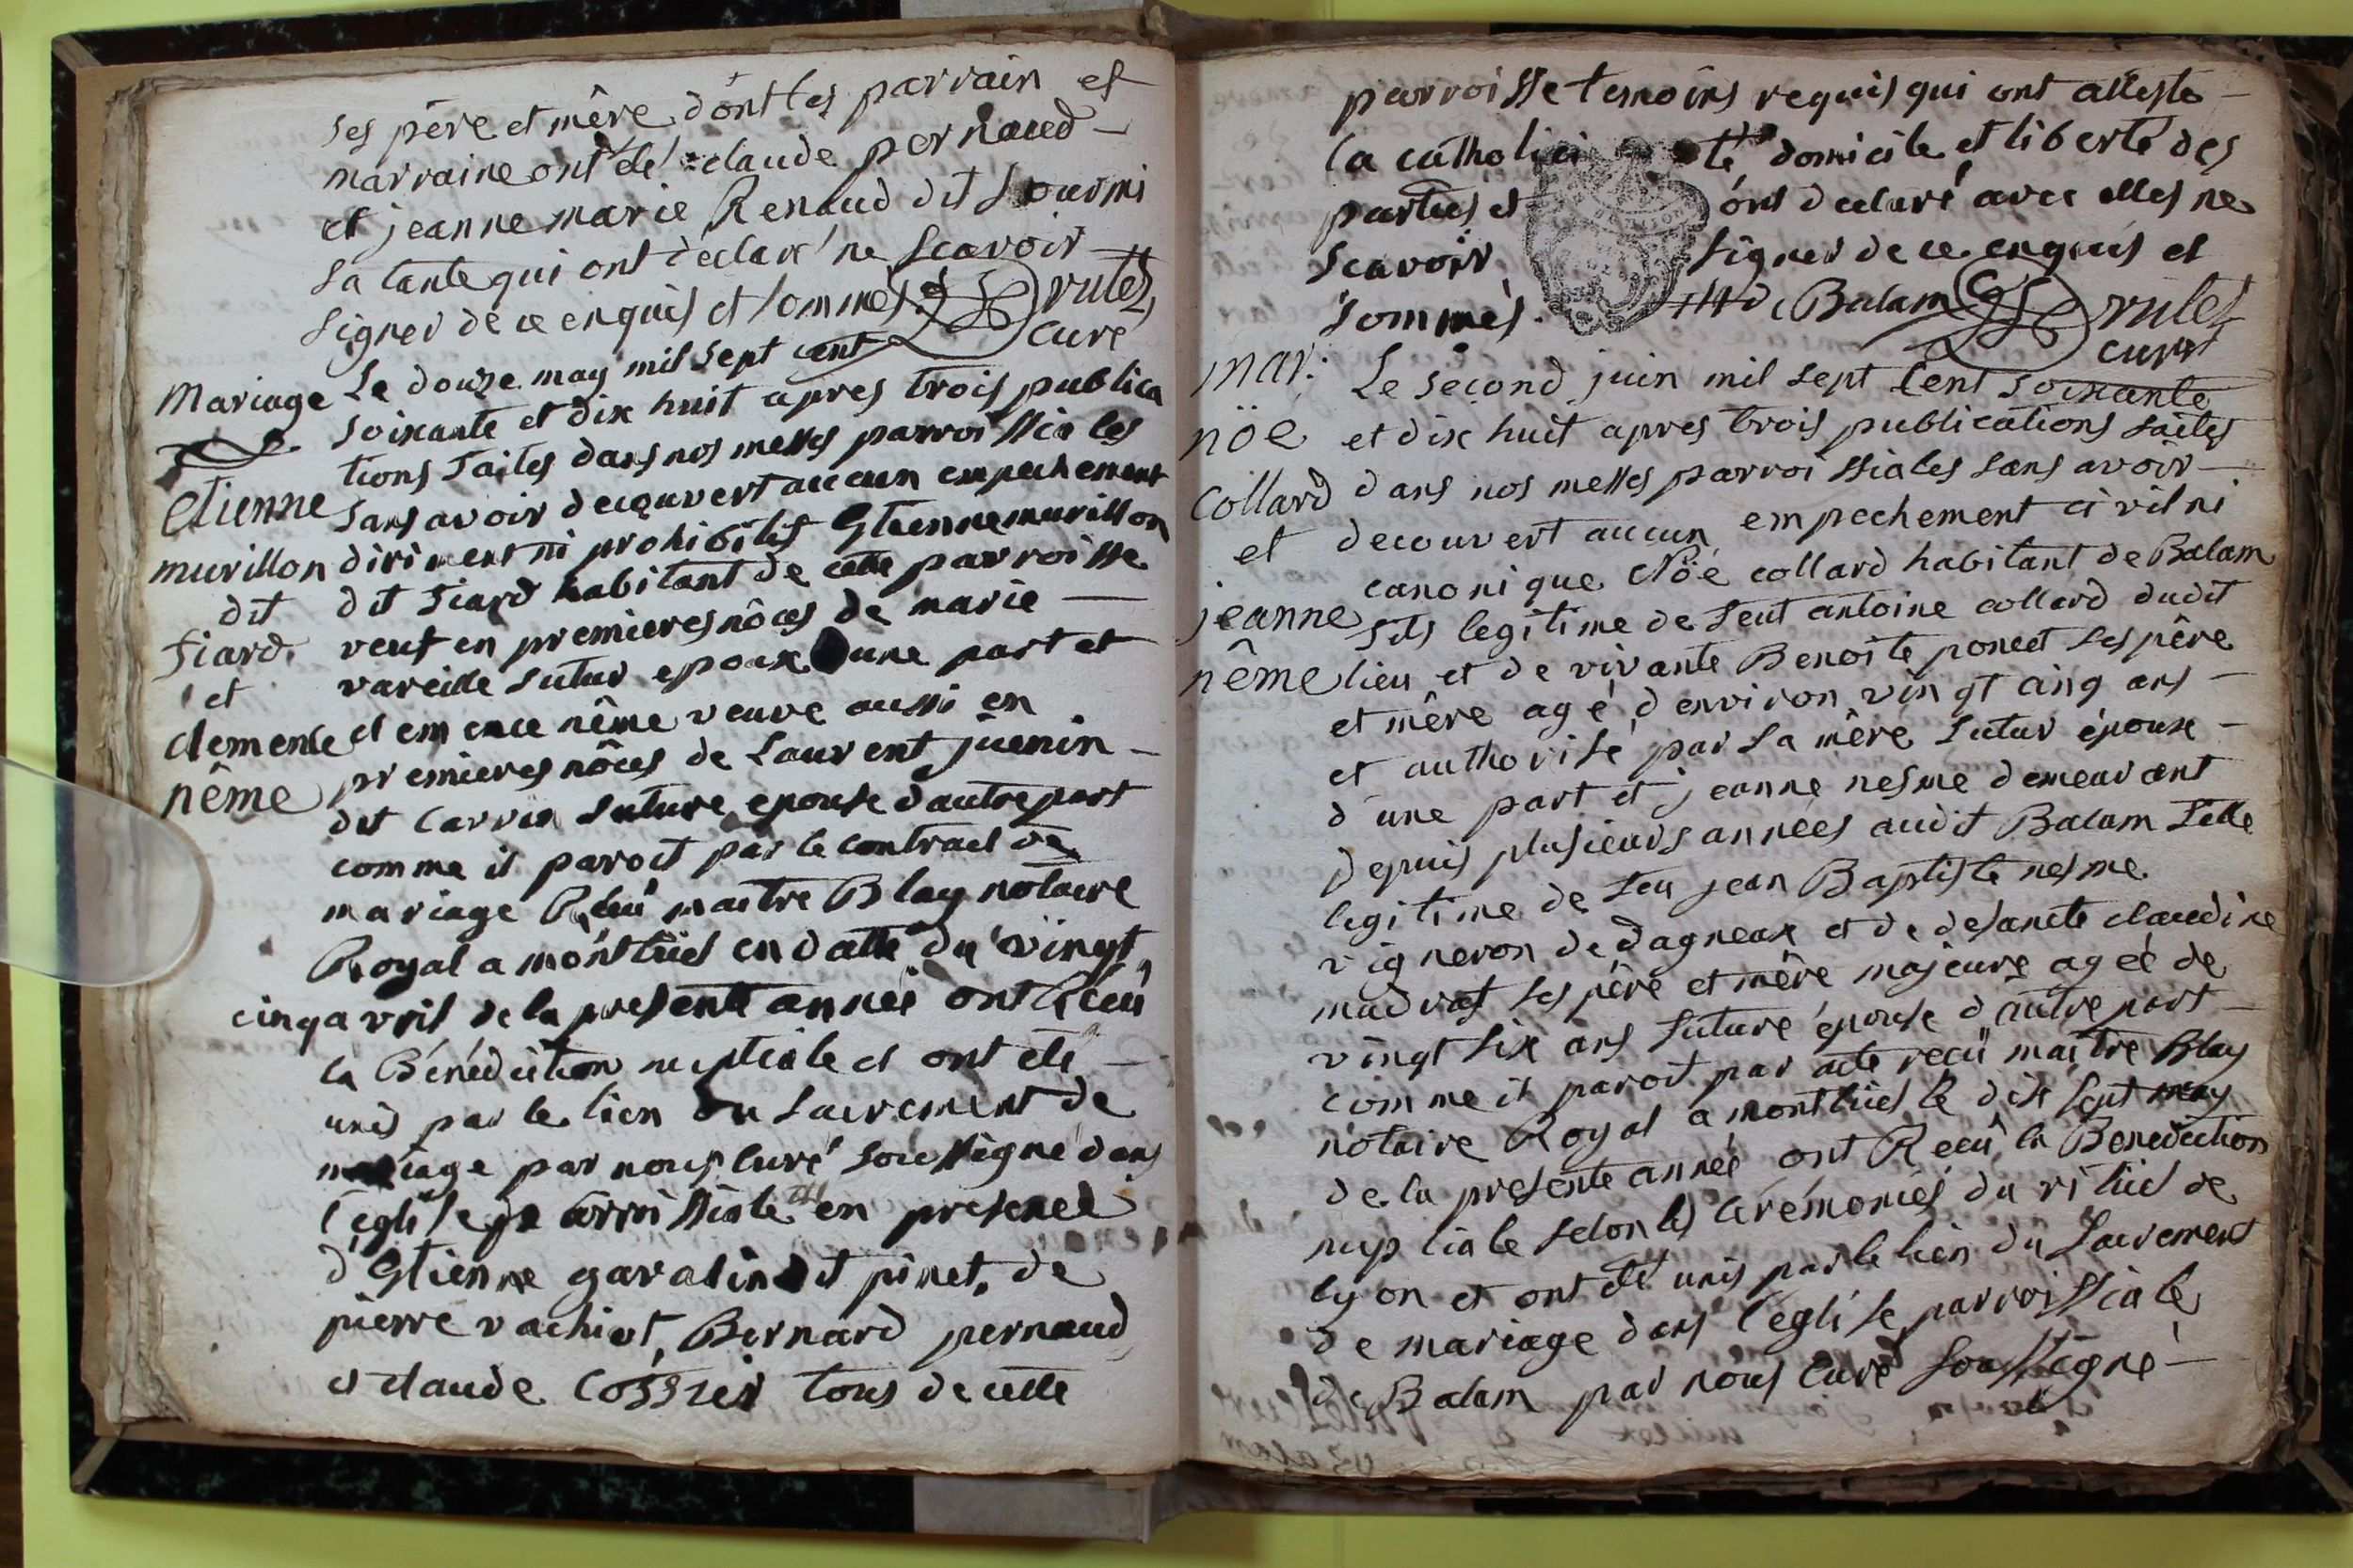 ses père et mère dont les parrain et
marraine ont eté claude pernaud
et jeanne marie Renaud dit fourmi
sa tante qui ont déclaré ne scavoir
signer de ce enquis et sommés. rutez
curé
Mariage
Etienne
murillon
dit
fiard
et
clemence
nême
Le douze may mil sept cent
soixante et dix huit apres trois publica
tions faites dans nos messes parroissiales
sans avoir decouvert aucun empechement
diriment ni prohibitif Etienne murillon
dit fiard habitant de cette parroisse
veuf en premieres nôces de marie
vareille futur epoux une part et
clemence nême veuve aussi en
premieres nôces de Laurent juenin
dit future epouse d'autre part
comme il paroit par le contract de
mariage Recû maitre Blay notaire
Royal a montlüel en datte du vingt
cinq avril de la presente année ont Recû
la Bénédiction nuptiale et ont eté
unis par le lien du sacrement de
mariage par nous curé soussigné dans
l'eglise parroissiale en presence
d'Etienne gavalin dit pinet, de
pierre vachiot, Bernard pernaud
et claude tous de cette
parroisse temoins requis qui ont attesté
la catholicité domicile et liberté des
parties et ont declaré avec elles ne
scavoir signer de ce enquis et
sommés. de Balam rutez
curé
mar:
nöe
collard
et
jeanne
nême
Le second juin mil sept cent soixante
et dix huit apres trois publications faites
dans nos messes parroissiales sans avoir
decouvert aucun empechement civil ni
canonique Nöe collard habitant de Balam
fils legitime de feut antoine collard dudit
lieu et de vivante Benoite poncet ses père
et mère agé d'environ vingt cinq ans
et authorisé par sa mère futur époux
d'une part et jeanne nesme demeurant
depuis plusieurs années audit Balam fille
legitime de feu jean Baptiste nesme
vigneron de dagneux et de defuncte claudine
madrat ses père et mère majeure agée de
vingt six ans future épouse d'autre part
comme il paroit par acte reçû maitre Blay
notaire Royal a montlüel le dix sept may
de la presente année ont Recû la Benediction
nuptiale selon les cérémonies du ritüel de
lyon et ont eté unis par le lien du sacrement
de mariage dans l'eglise parroissiale
de Balam par nous curé soussigné